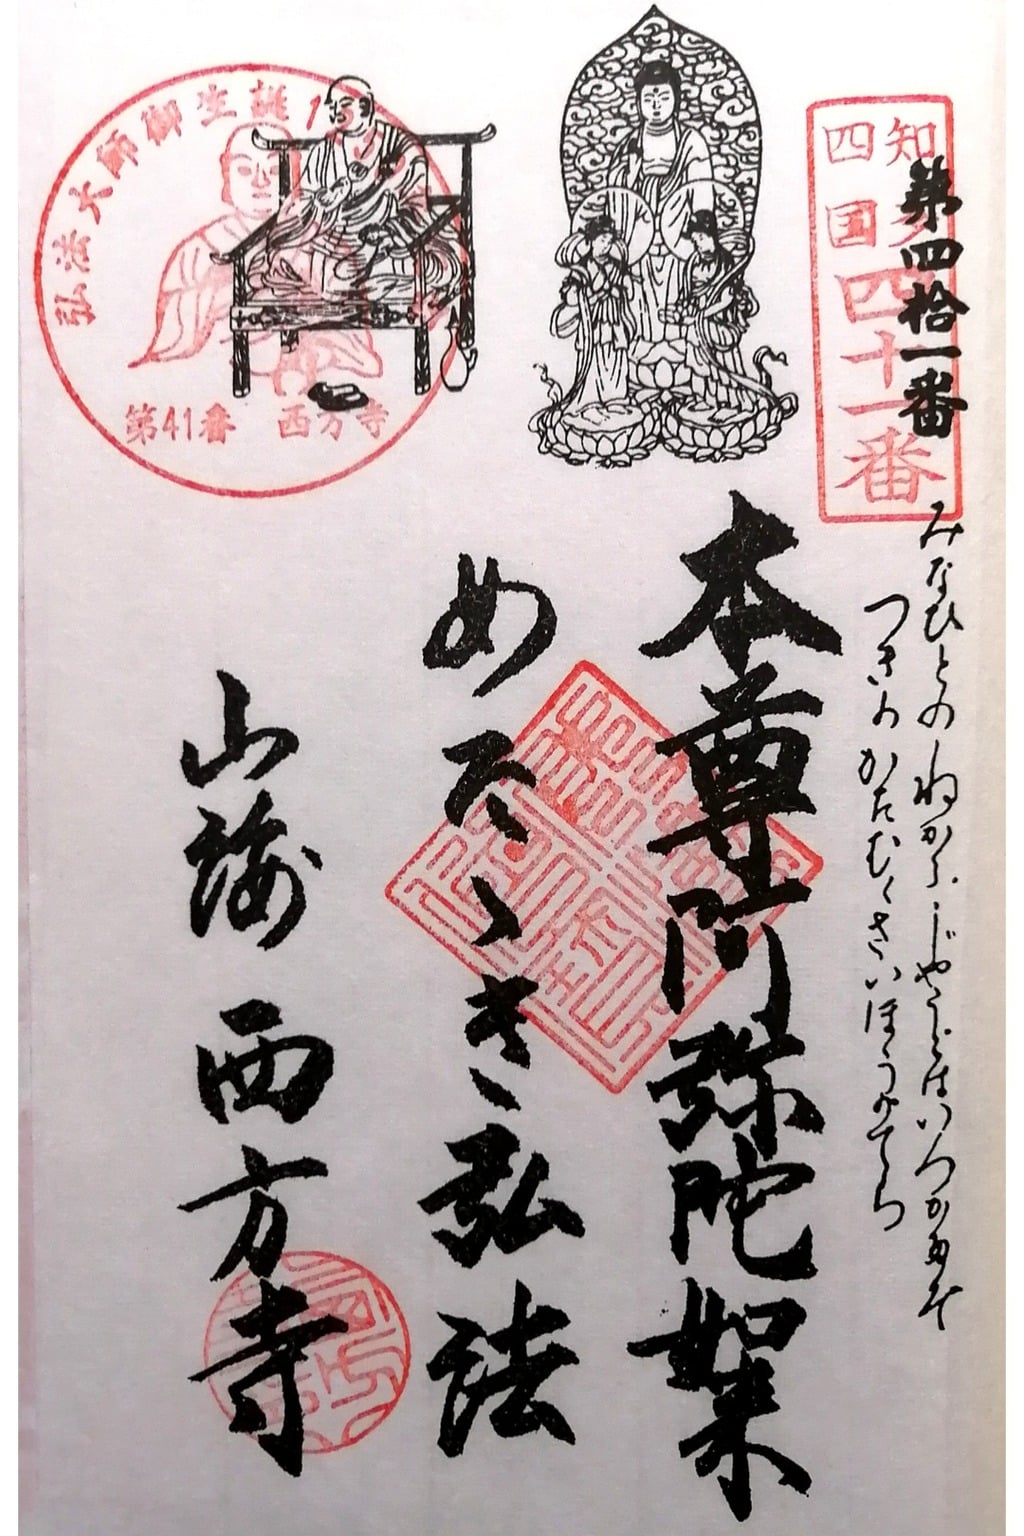 知多
四国
四十一番
第四拾一番
みなひとのねかふじやうどはいつかたぞ
つきのかたむくさいほうのてら
本尊阿弥陀如来
めたゝき弘法
山海西方寺
弘法大師御生誕1
第41番 西方寺